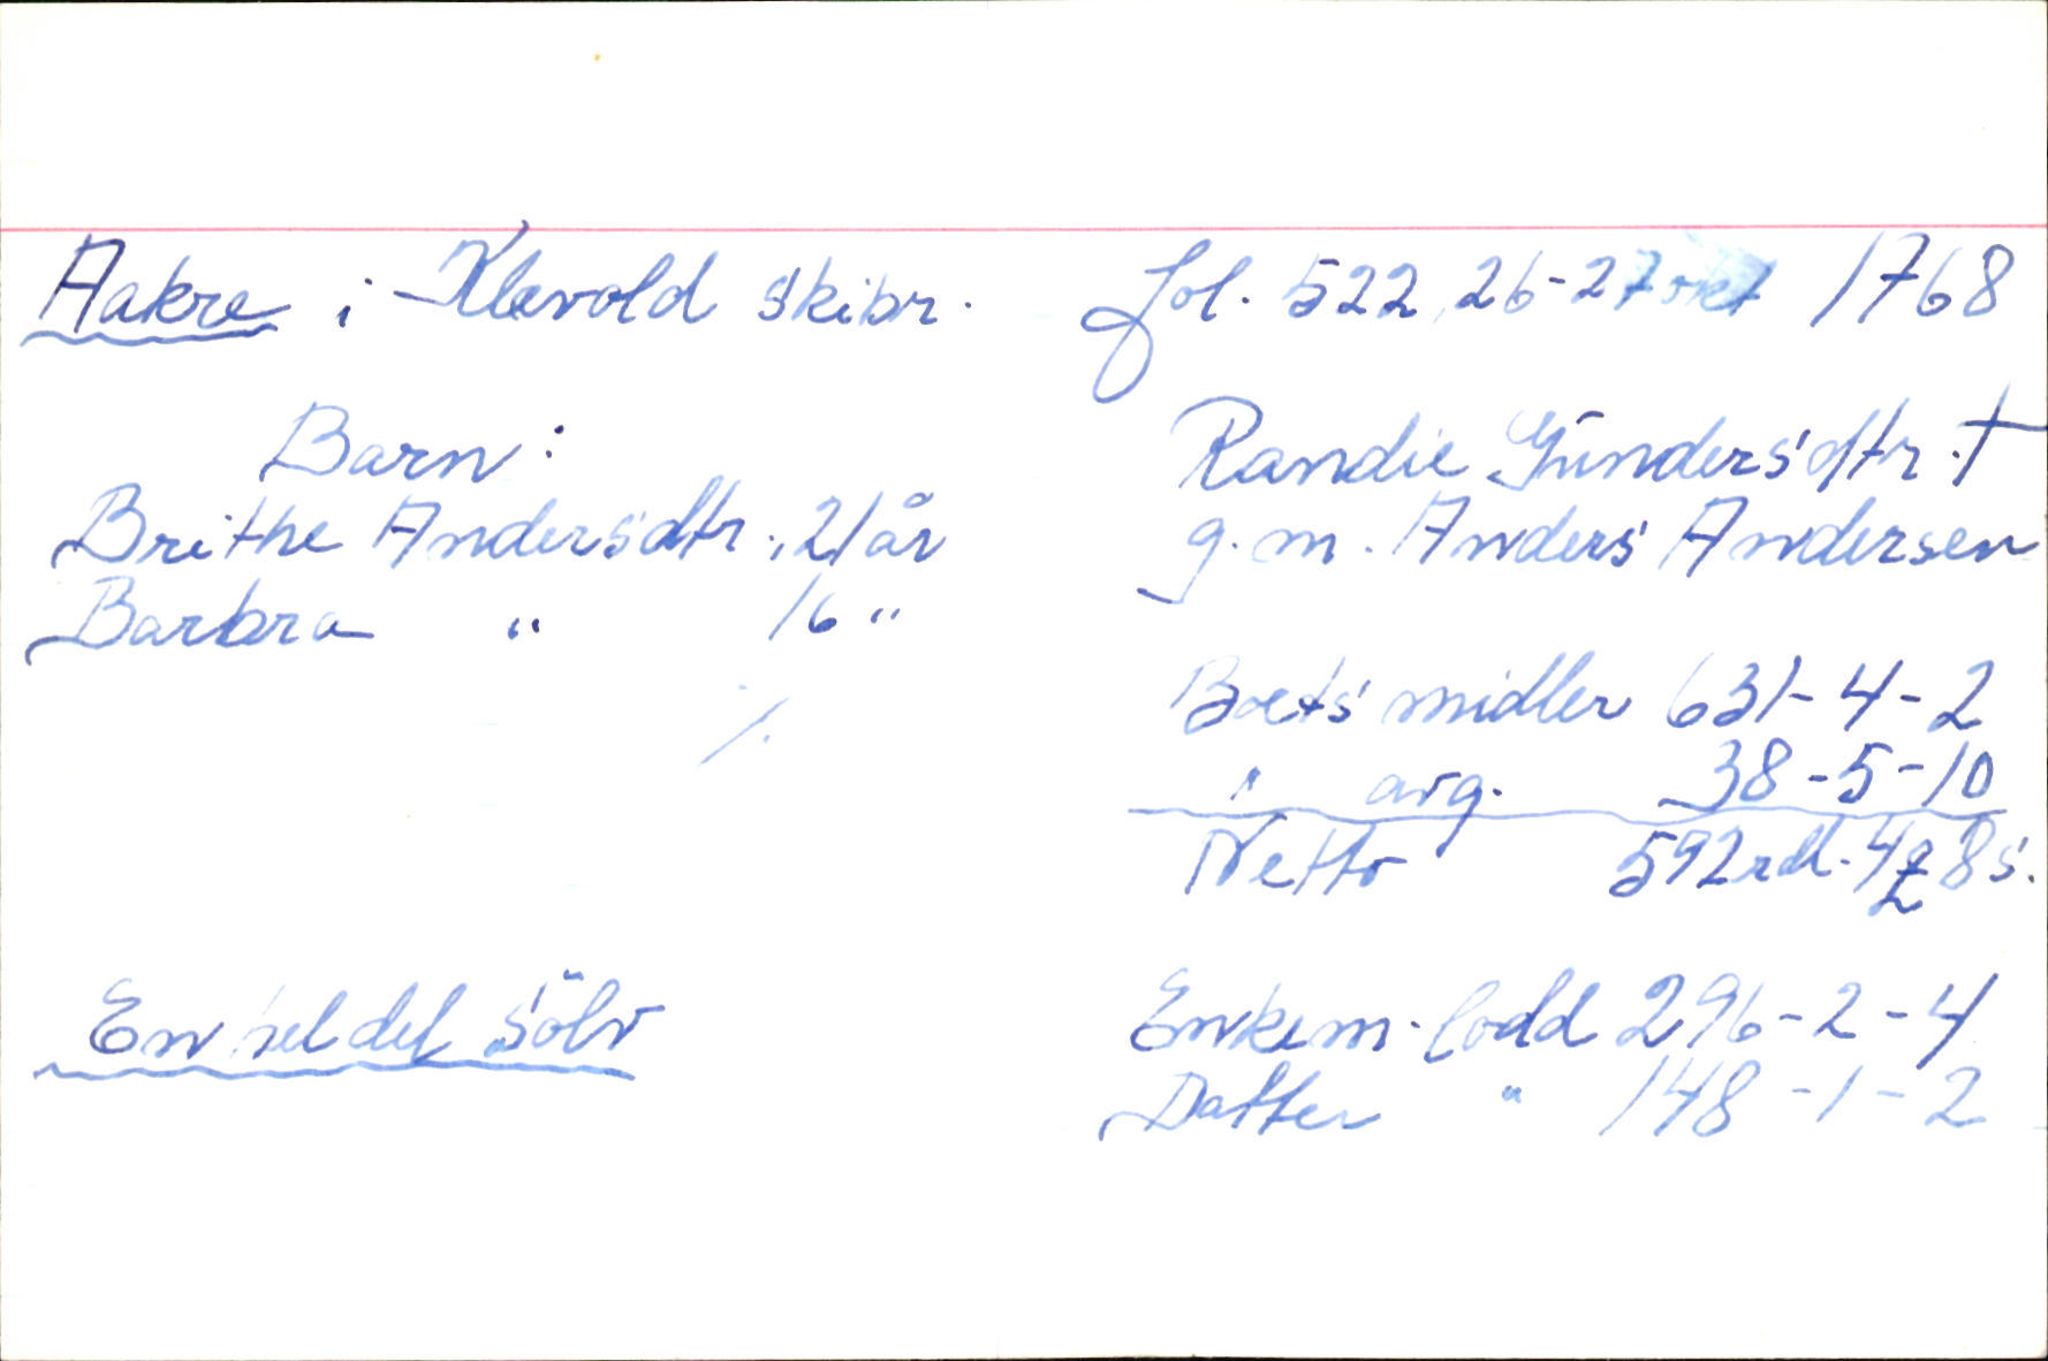 Aakre i Klevold skibr. fol. 522, 26-27 okt 1768
Barn:
Brithe Andersdtr., 21 år
Barbra " 16 "
./.
En hel del sölv
Randie Gúndersdtr. †
g. m. Anders Andersen
Boets midler 631-4-2
" arg. 38-5-10
Netto 592 rdl. 4 8 s.
Enkem. lodd 296-2-4
Datter " 148-1-2